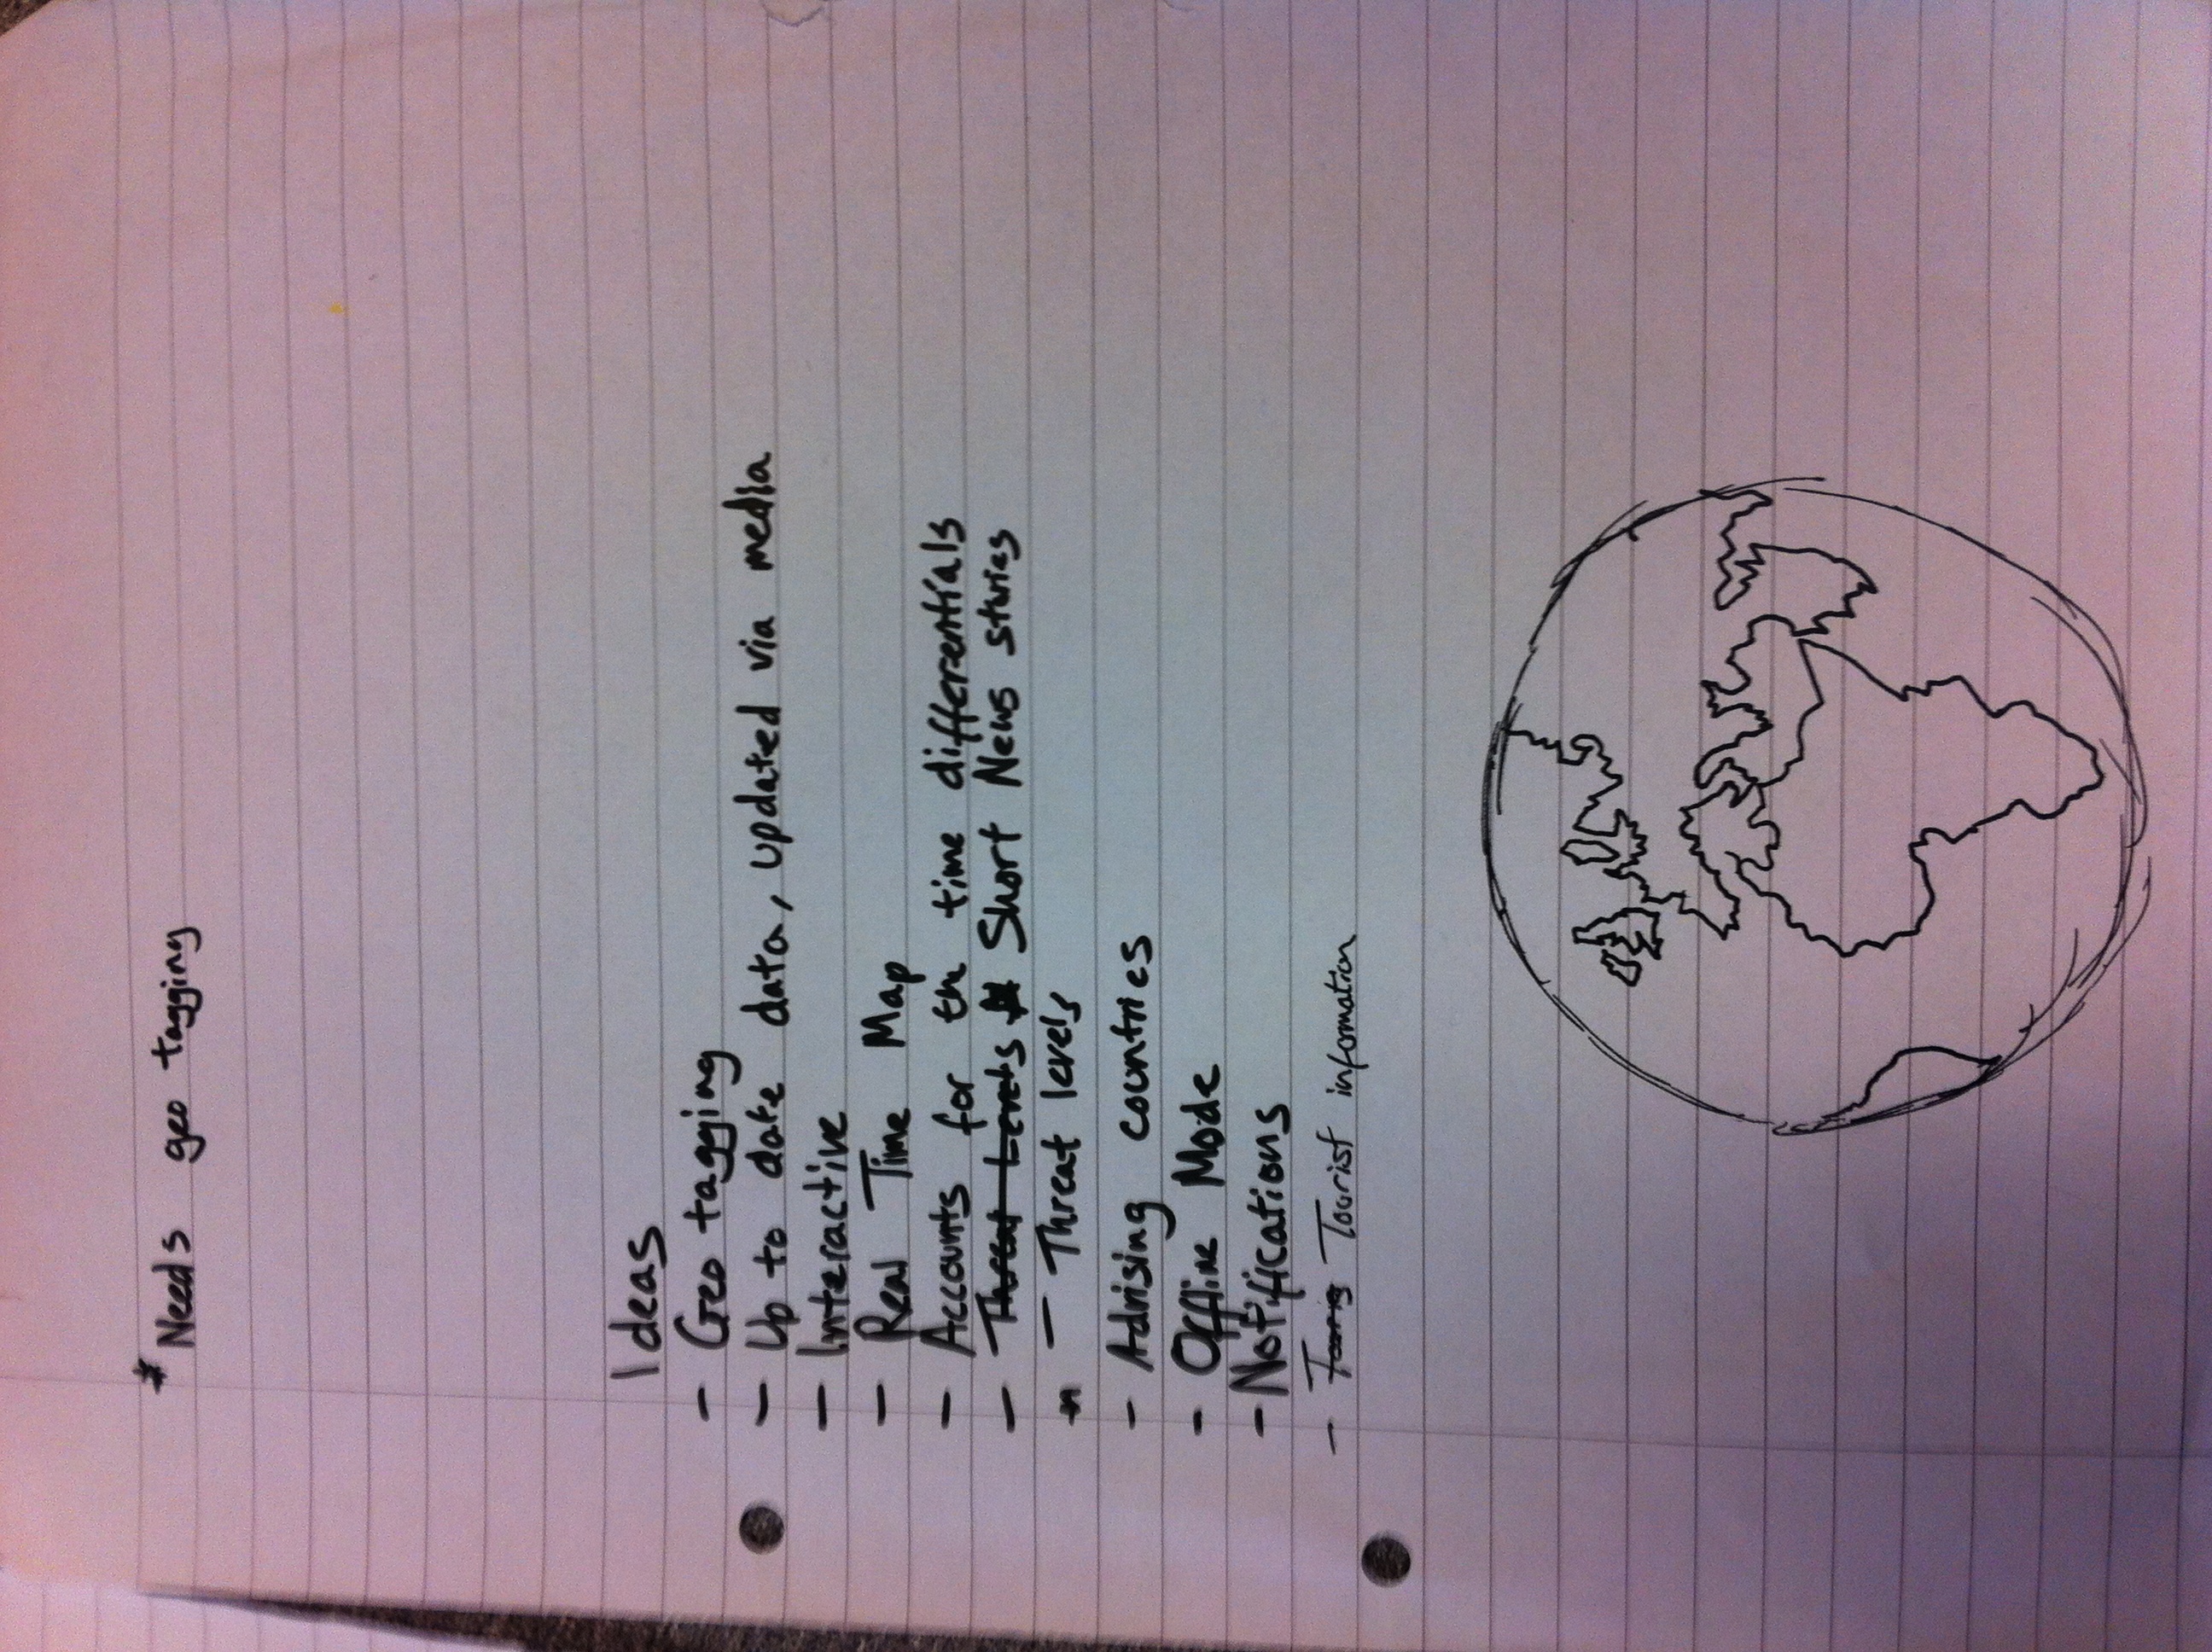 * Needs geo tagging
Ideas
- Geo tagging
- Up to date data, updated via media
- Interactive
- Real Time Map
- Accounts for th time differentials
- Threat Levels Short News stories
* - Threat levels
- Advising countries
- Offline Mode
- Notifications
- Touris Tourist information